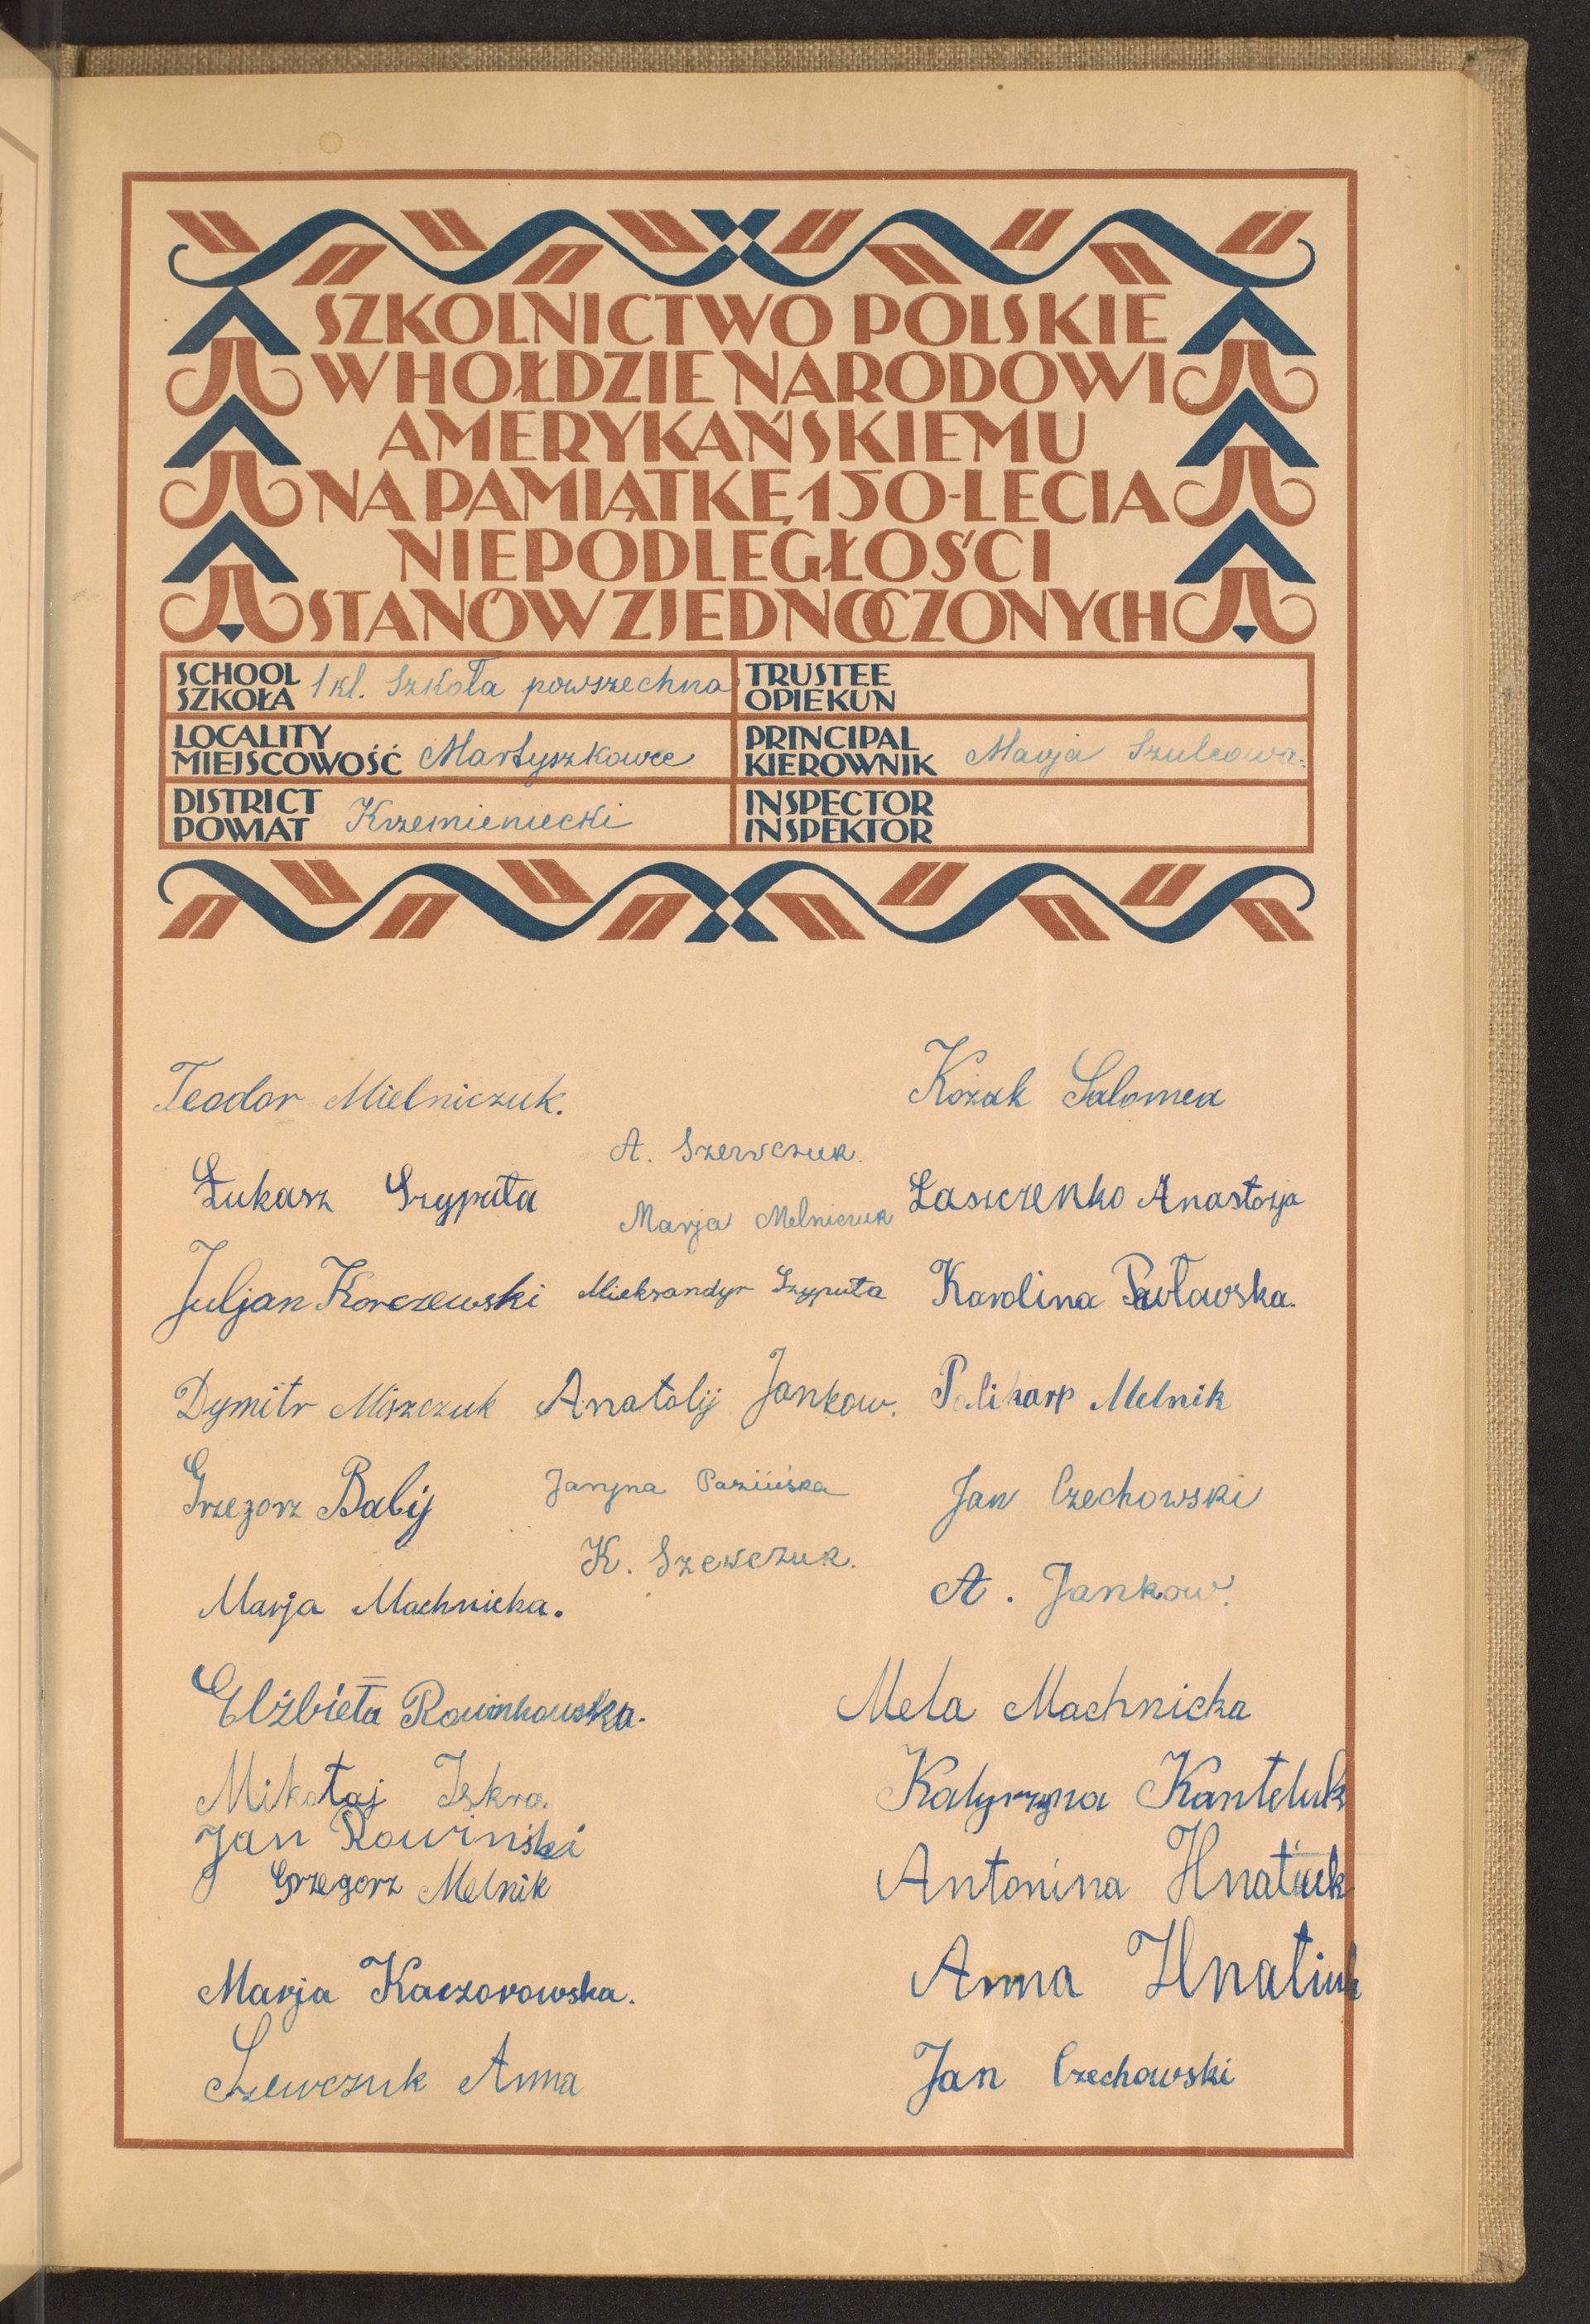 SZKOLNICTWO POLSKIE
W HOŁDZIE NARODOWI
AMERYKAŃSKIEMU
NA PAMIĄTKĘ 150-LECIA
NIEPODLEGŁOŚCI
STANÓW ZJEDNOCZONYCH
SCHOOL
SZKOŁA
1 kl. Szkoła powszechna
TRUSTEE
OPIEKUN
LOCALITY
MIEJSCOWOŚĆ
Martyszkowce
PRINCIPAL
KIEROWNIK
Marja Szulcowa.
DISTRICT
POWIAT
Krzemieniecki
INSPECTOR
INSPEKTOR
Teodor Mielniczuk.
Łukasz Szyputa
Juljan Korczewski
Dymitr Miszczuk
Grzegorz Babij
Marja Machnicka.
Elżbieta Rowinkowska.
Mikołaj Iskra.
Jan Rowiński
Grzegorz Melnik
Marja Kaczorowska.
Szewczuk Anna
A. Szewczuk.
Marja Melniczuk
Szyputa
Anatolij Jankow.
Janyna
K. Szewczuk.
Kozak Salomea
Łaszczenko Anastazja
Karolina Pawłowska.
Palikarp Melnik
Jan Czechowski
A. Jankow.
Mela Machnicka
Katyrzyna Kanteluk
Antonina Hnatiuk
Anna Hnatiuk
Jan Czechowski